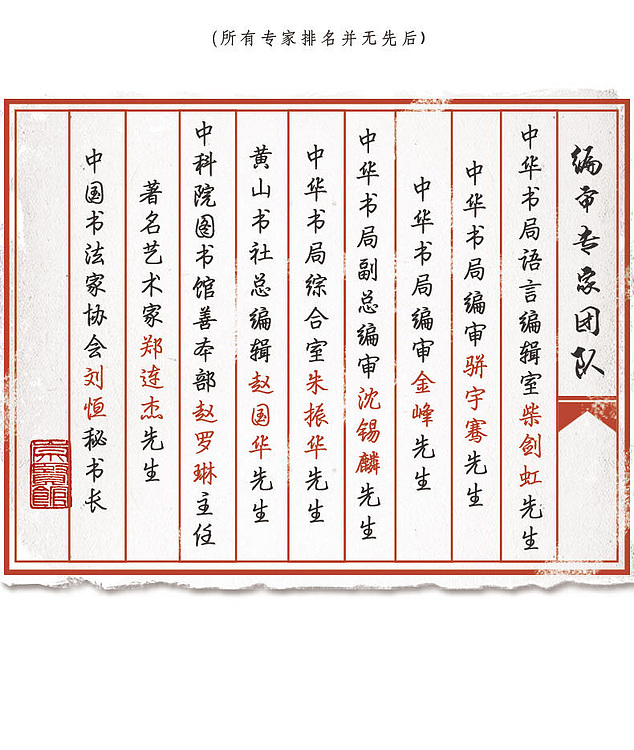 (所有专家排名并无先后)
编审专家团队
中华书局语言编辑室柴剑虹先生
中华书局编审骈宇骞先生
中华书局编审金峰先生
中华书局副总编审沈锡麟先生
中华书局综合室朱振华先生
黄山书社总编辑赵国华先生
中科院图书馆善本部赵罗琳主任
著名艺术家郑连杰先生
中国书法家协会刘恒秘书长